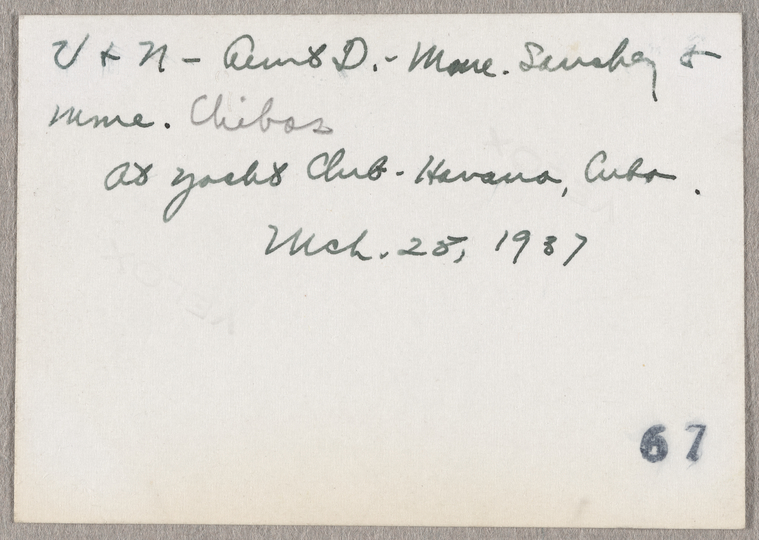 V + N - Aunt D. - Mme. Sanchez +
Mme. Chibas
at Yacht Club - Havana, Cuba.
Mch. 25, 1937
67